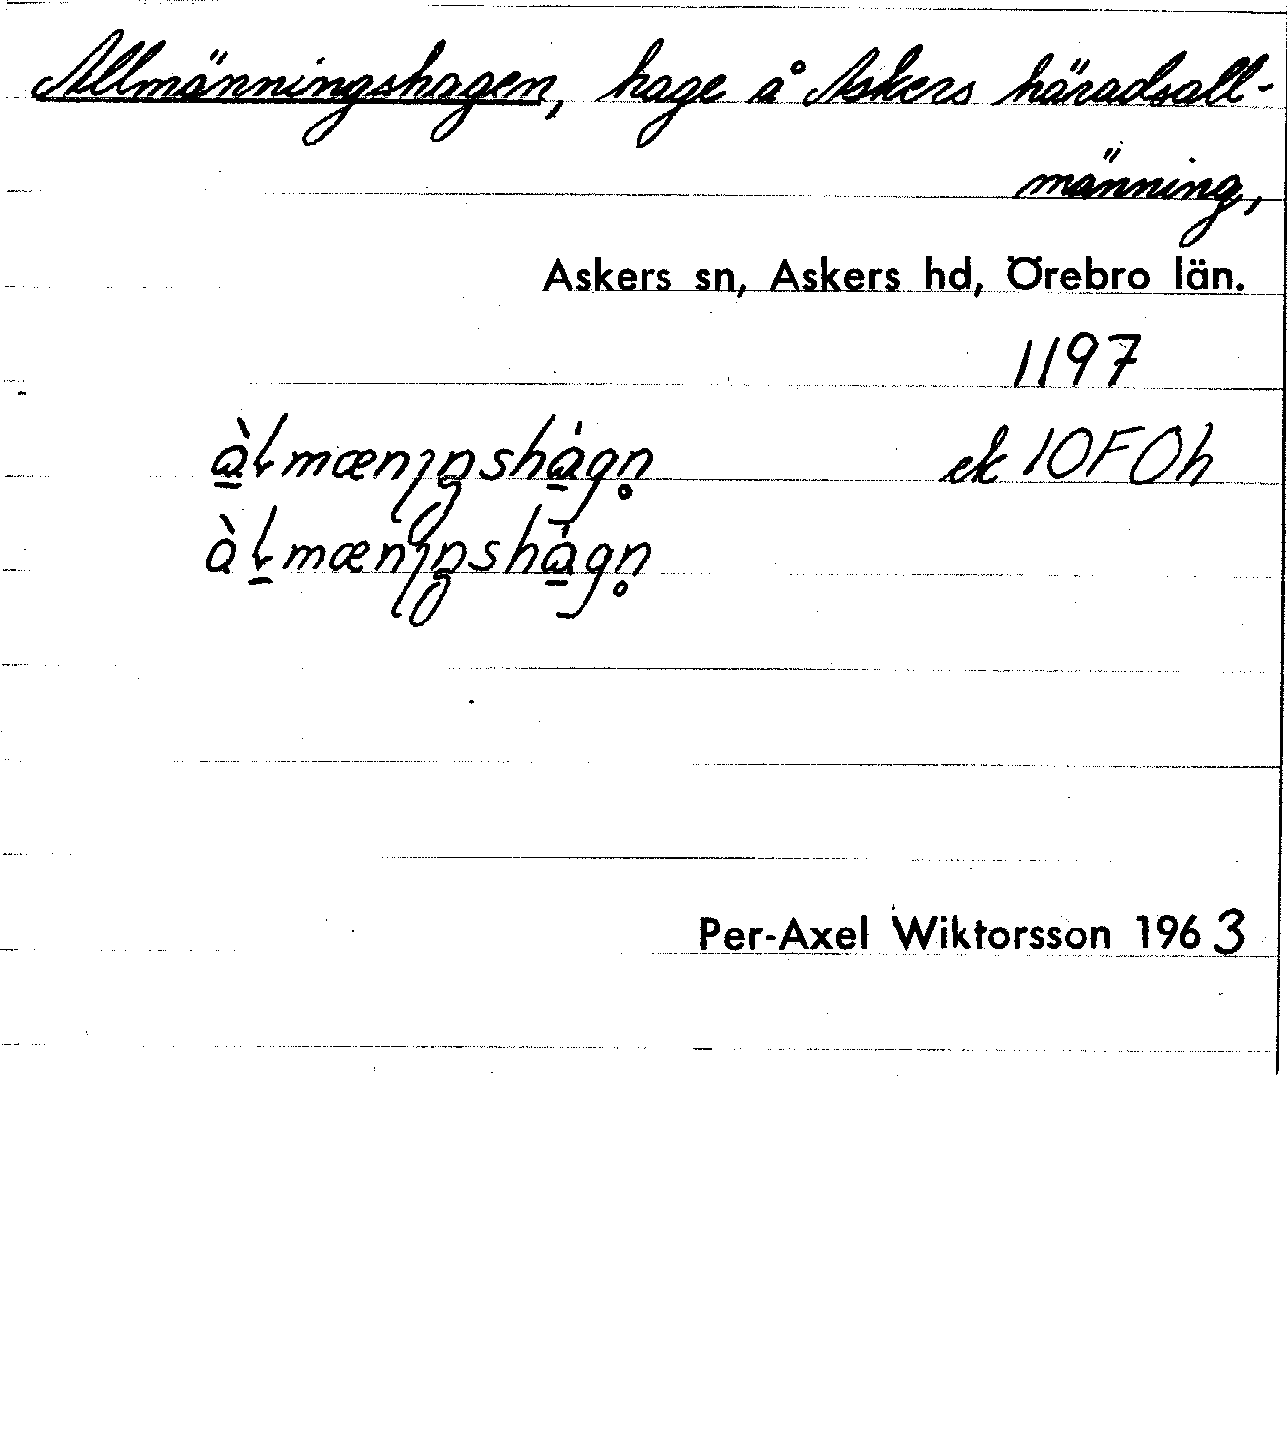 Allmänningshagen, hage å Askers häradsall-
männing,
Askers sn, Askers hd, Örebro län.
1197
à̱ɫmænıŋshá̱gn̥ ek 10F0h
àɫ̱mænıŋshá̱gn̥
Per-Axel Wiktorsson 1963